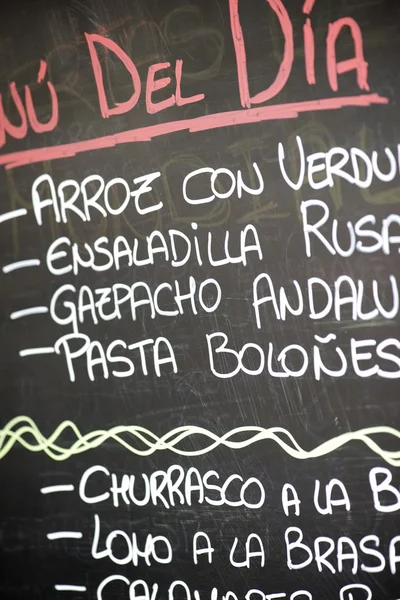 NÚ DEL DÍA
- ARROZ CON VERDU
- ENSALADILLA RUSA
- GAZPACHO ANDALU
- PASTA BOLOÑES
- CHURRASCO A LA B
- LOMO A LA BRASA
- CALAMARES